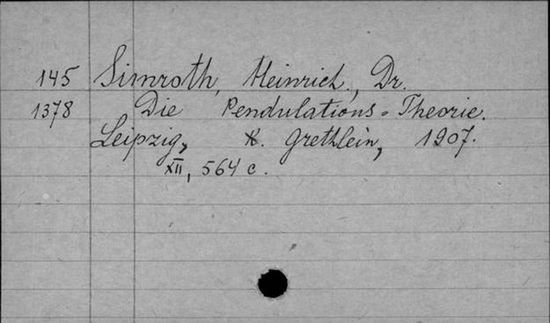 145 Simroth, Heinrich., Dr.
1378 Die Pendulations-Theorie.
Leipzig, K. Grethlein, 1907.
XII, 564 c.